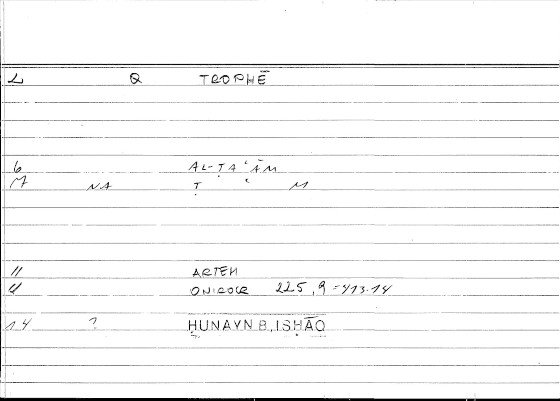 L Q TROPHĒ
6 AL-ṬAʿĀM
M NA Ṭ ʿ M
11 ARTEM
ONIROCR 225,9=413.14
14 ? ḤUNAYN B. ISḤĀQ